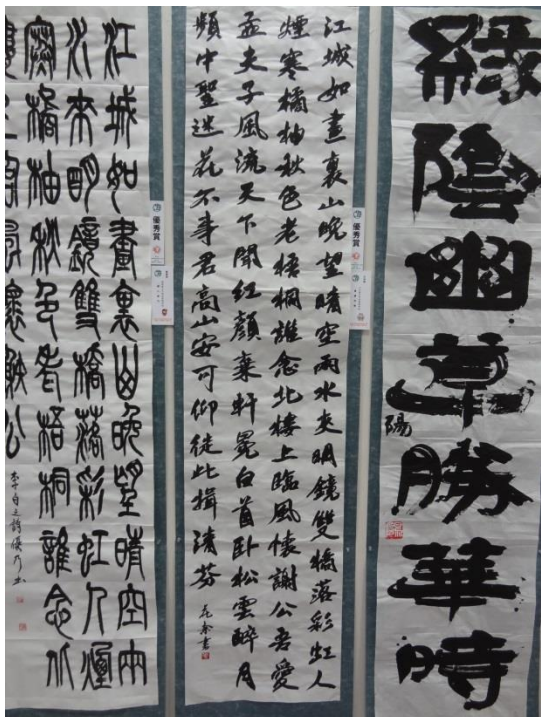 綠陰幽草勝華時
陽
優秀賞
江城如畫裏山晚望晴空兩水夾明鏡雙橋落彩虹人
煙寒橘柚秋色老梧桐誰念北樓上臨風懷謝公吾愛
孟夫子風流天下聞紅顏棄軒冕白首臥松雲醉月
頻中聖迷花不事君高山安可仰徒此揖清芬
優秀賞
江城如畫裏山晚望晴空兩
水夾明鏡雙橋落彩虹人煙
寒橘柚秋色老梧桐誰念北
樓上臨風懷謝公
李白之詩